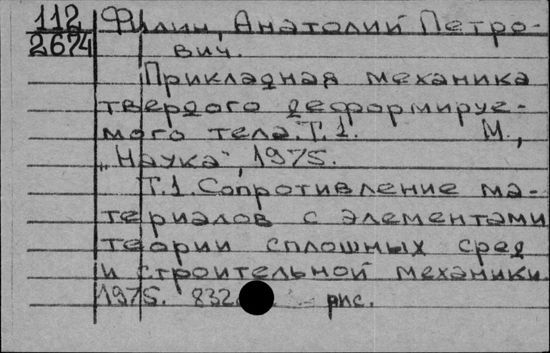 112
2674
Филин, Анатолий Петро-
вич.
Прикладная механика
твердого деформируе-
мого тела. Т. 1. М.,
„Наука", 1975.
Т. 1. Сопротивление ма-
териалов с элементами
теории сплошных сред
и строительной механики.
1975. 832 рис.